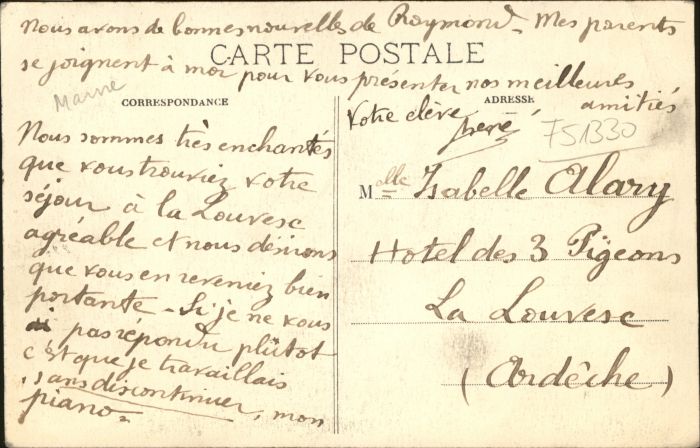 Nous avons de bonnes nouvelles de Raymond. Mes parents
CARTE POSTALE
se joignent à moi pour vous présenter nos meilleures
amitiés
Marne
CORRESPONDANCE
ADRESSE
Votre élève
751330
Nous sommes très enchantés
que vous trouviez votre
séjour à la Louvesc
agréable et nous désirons
que vous en reveniez bien
portante - Si je ne vous
ai pas repondu plûtot
c'est que je travaillais
, sans discontinuer, mon
piano -
Melle Isabelle Alary
Hotel des 3 Pigeons
La Louvesc
(Ardèche)